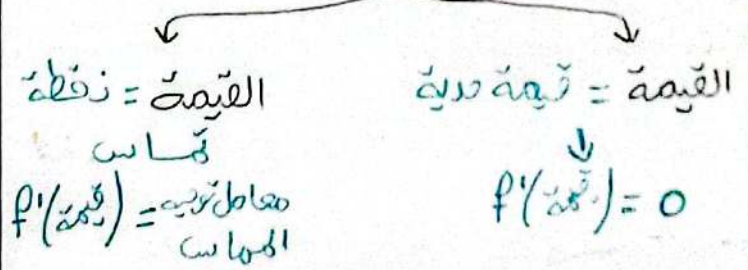 القيمة = قيمة حدية
f'(قيمة) = 0
القيمة = نقطة
تماس
f'(قيمة) = معامل توجيه
المماس